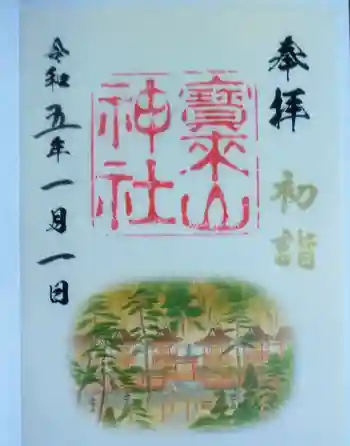 奉拝
初詣
寶来山
神社
令和五年一月一日